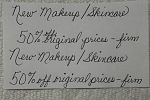 New Makeup/Skincare
50% original prices - firm
New Makeup/Skincare
50% off original prices - firm